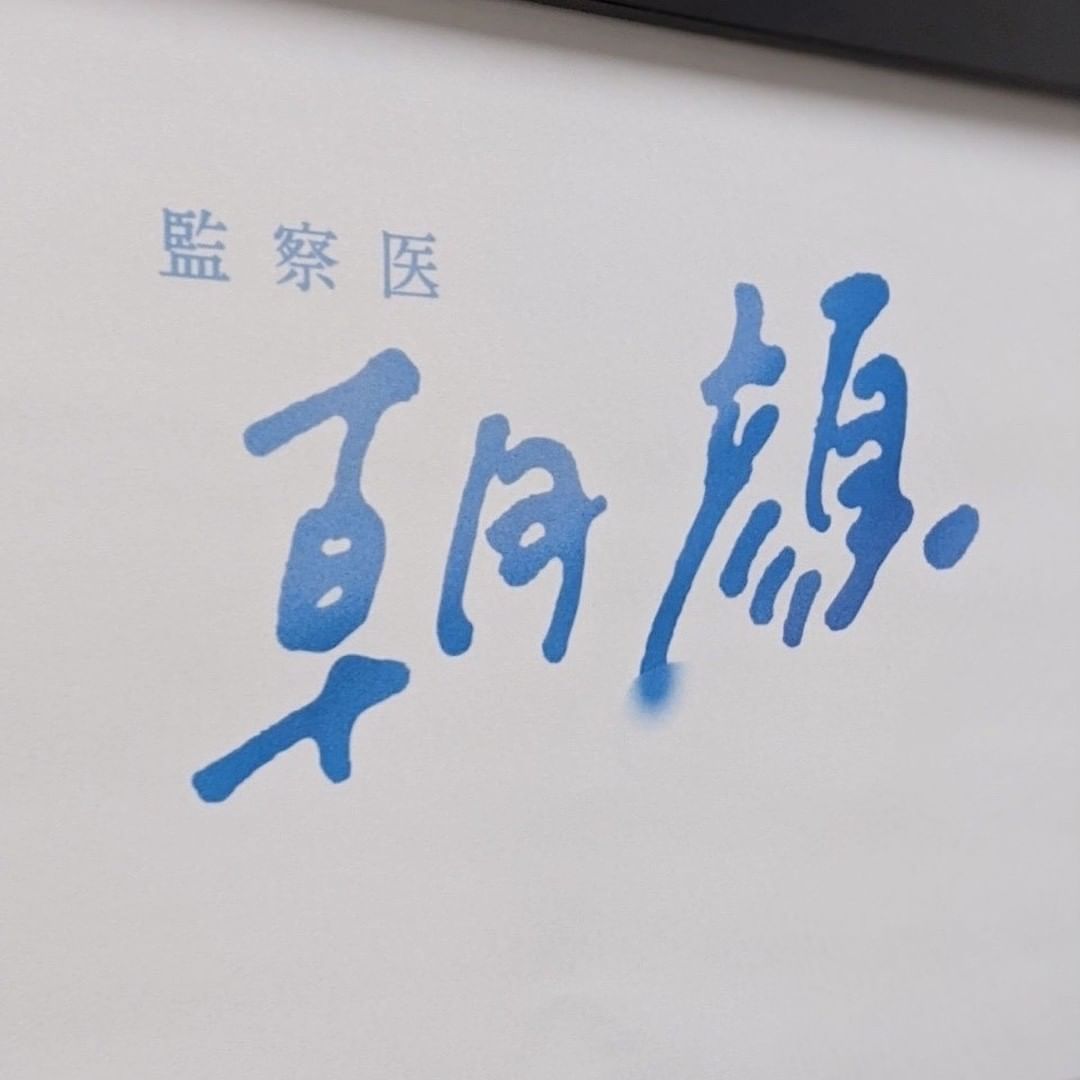 監察医
朝顔